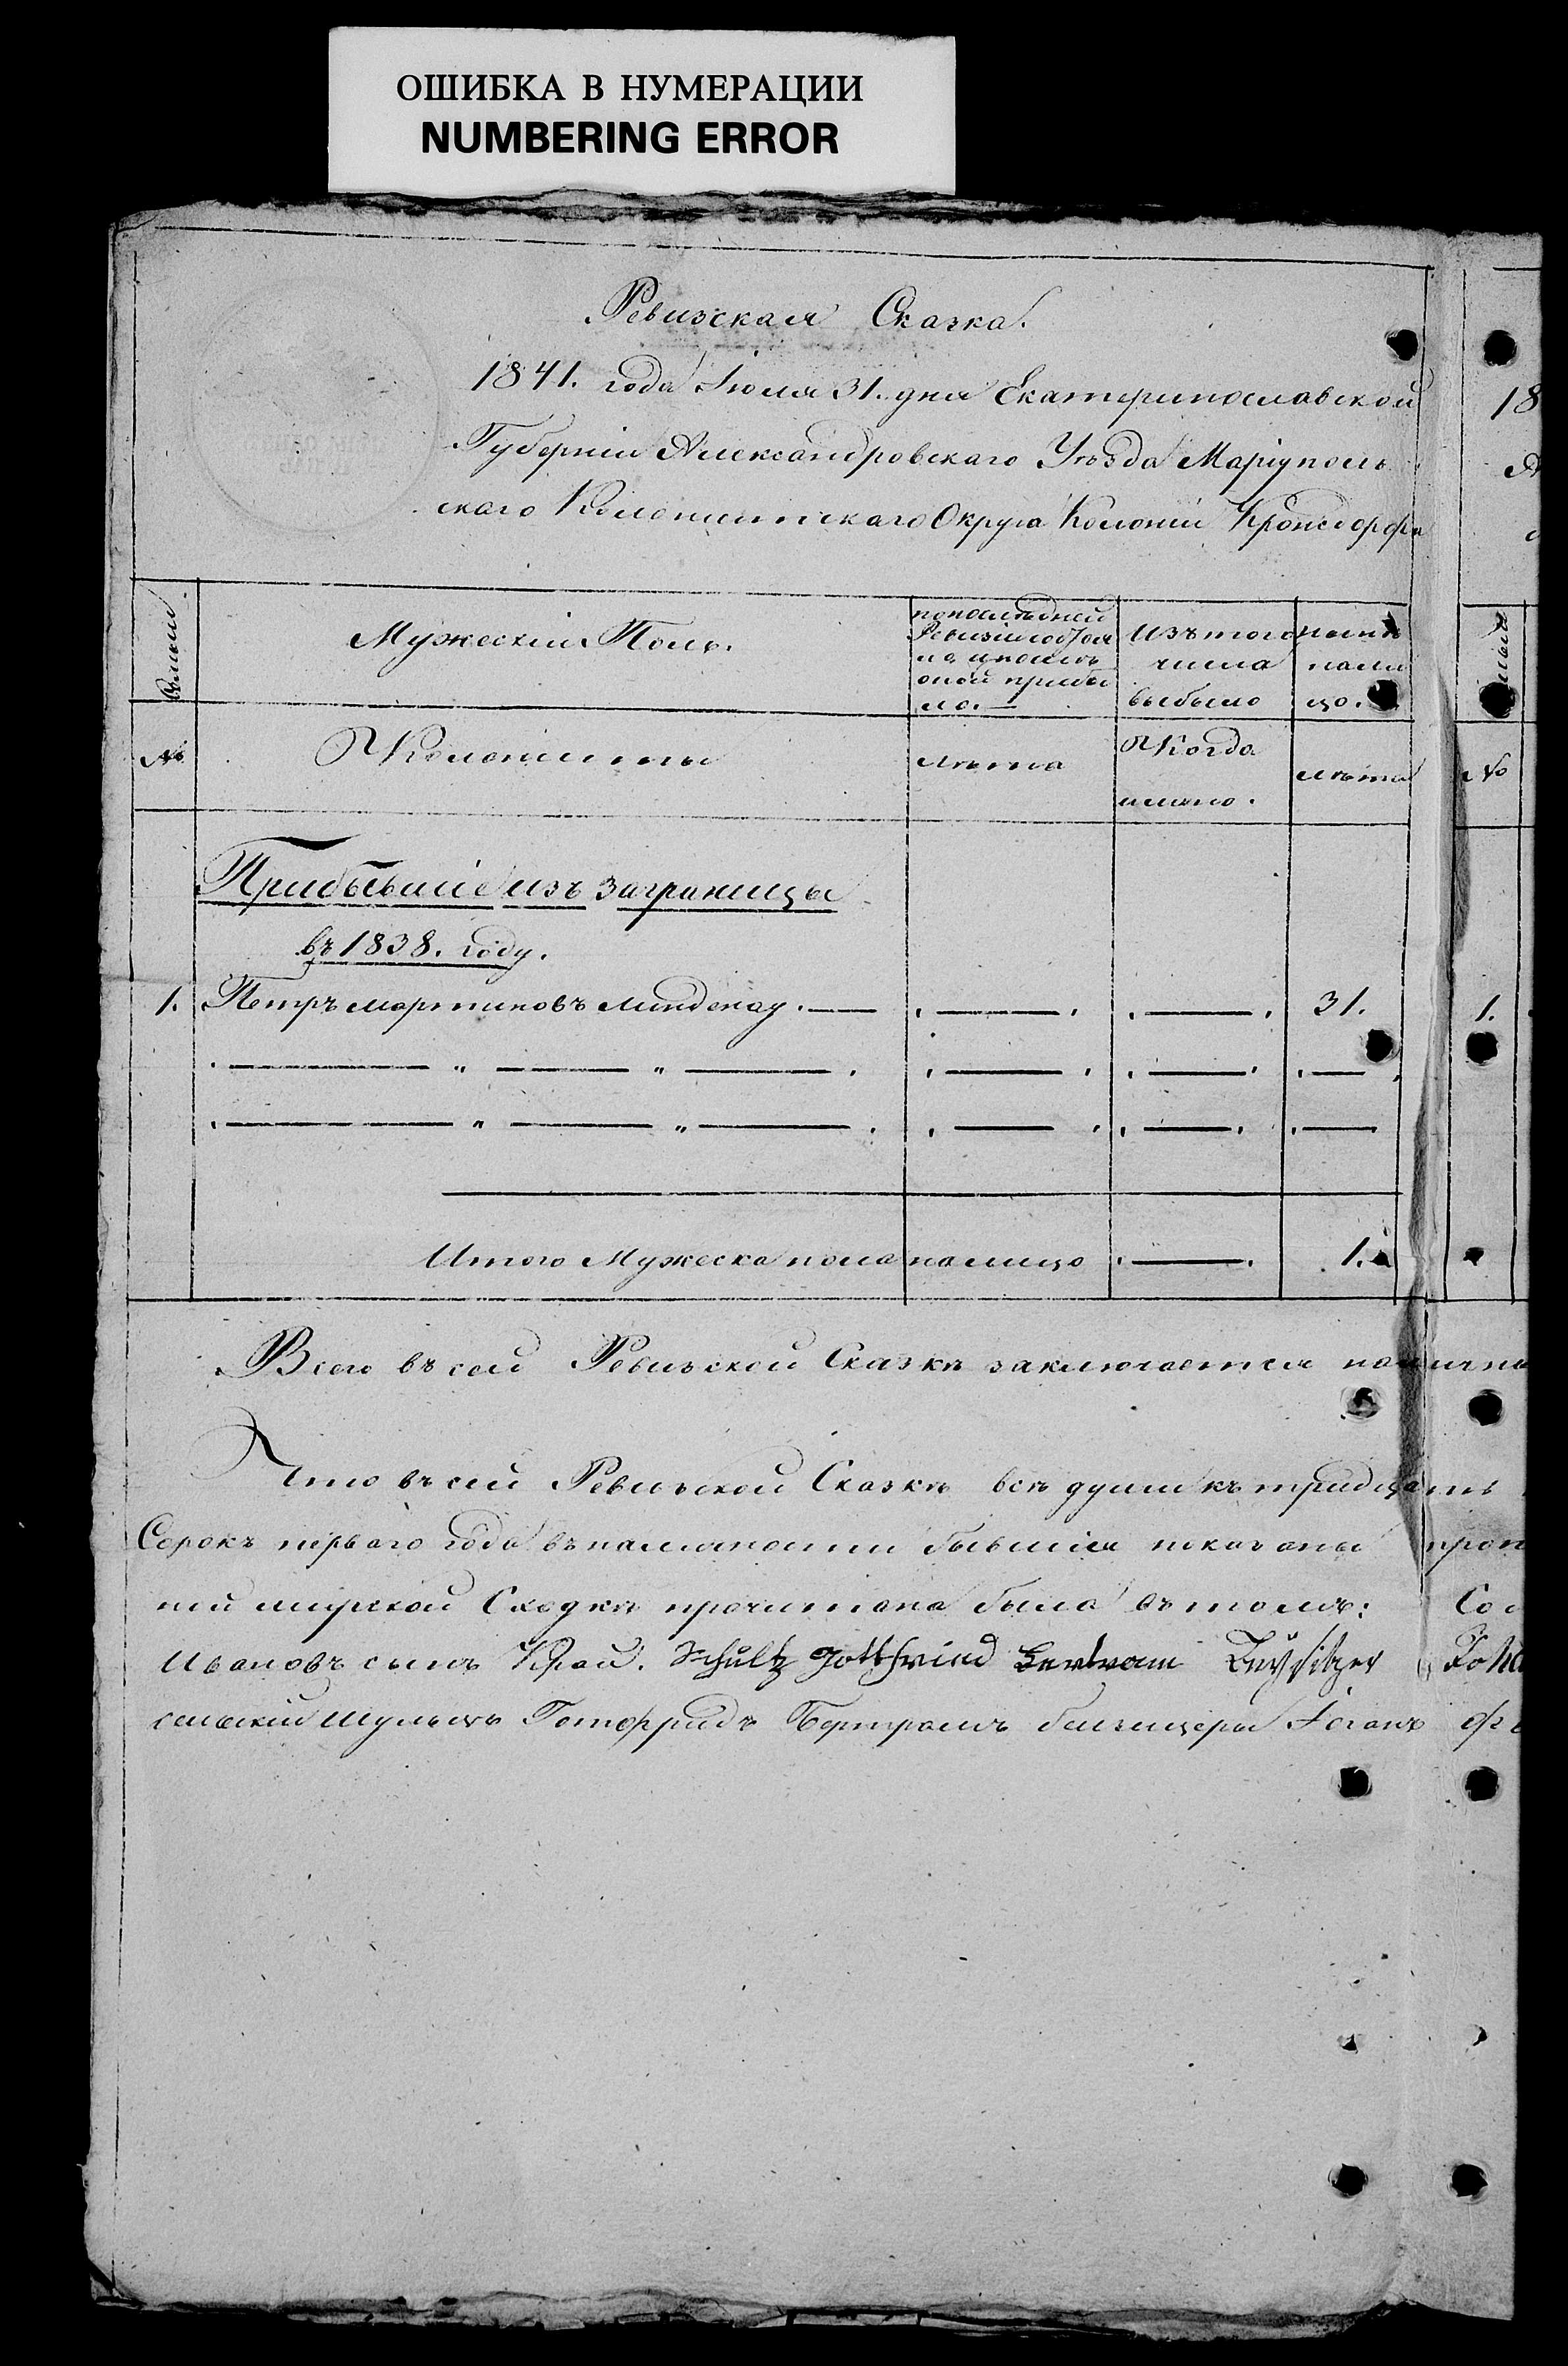 ОШИБКА В НУМЕРАЦИИ
NUMBERING ERROR
Ревизская Сказка.
1841. года Іюля 31. дня Екатеринославской
Губерніи Александровскаго Уѣзда Маріуполь
скаго Колонистскаго Округа Колоніи Кронсдорфа
18
Мужескій Полъ.
по послѣдней
Ревизіи состоя
ло и послѣ
оной прибы
ло.
Изъ того
числа
выбыло
нынѣ
нали
цо.
№
Колонисты
лѣта
Когда
имяно.
лѣта
№
Прибывшіе изъ заграницы
въ 1838. году.
1. Петръ Мартиновъ Линденау. 31. 1.
Итого Мужеска пола налицо 1.
Всего въ сей Ревизской Сказкѣ заключается налична
Что въ сей Ревизской Сказкѣ всѣ души къ тридцать
Сорокъ перваго года въ наличности бывшія показаны проп
ній мирской Сходкѣ прочитана была въ томъ:
Ивановъ сынъ Край. Schultz Gottfried Bertram Beysitzer Joha
сельскій Шульцъ Готфридъ Бертрамъ бейзицеры Іоганъ